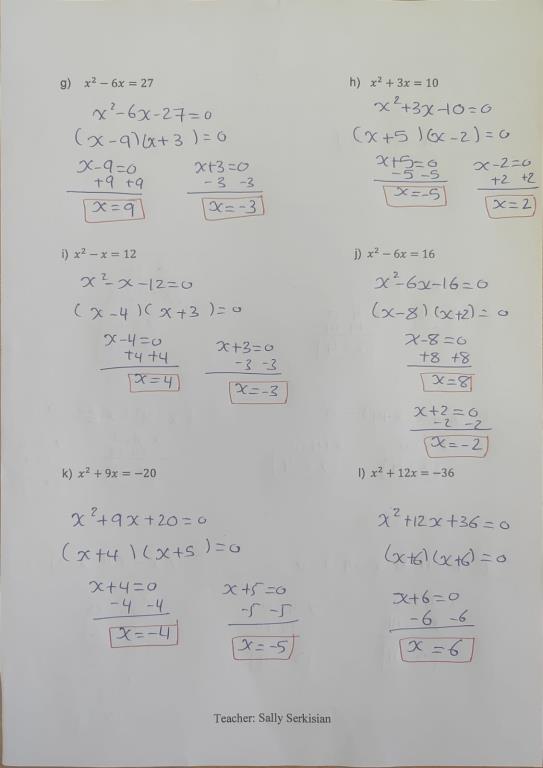 g) x² − 6x = 27
x²-6x-27=0
(x-9)(x+3)=0
x-9=0
+9 +9
x=9
x+3=0
-3 -3
x=-3
h) x² + 3x = 10
x²+3x-10=0
(x+5)(x-2)=0
x+5=0
-5 -5
x=-5
x-2=0
+2 +2
x=2
i) x² − x = 12
x²-x-12=0
(x-4)(x+3)=0
x-4=0
+4 +4
x=4
x+3=0
-3 -3
x=-3
j) x² − 6x = 16
x²-6x-16=0
(x-8)(x+2)=0
x-8=0
+8 +8
x=8
x+2=0
-2 -2
x=-2
k) x² + 9x = −20
x²+9x+20=0
(x+4)(x+5)=0
x+4=0
-4 -4
x=-4
x+5=0
-5 -5
x=-5
l) x² + 12x = −36
x²+12x+36=0
(x+6)(x+6)=0
x+6=0
-6 -6
x=6
Teacher: Sally Serkisian